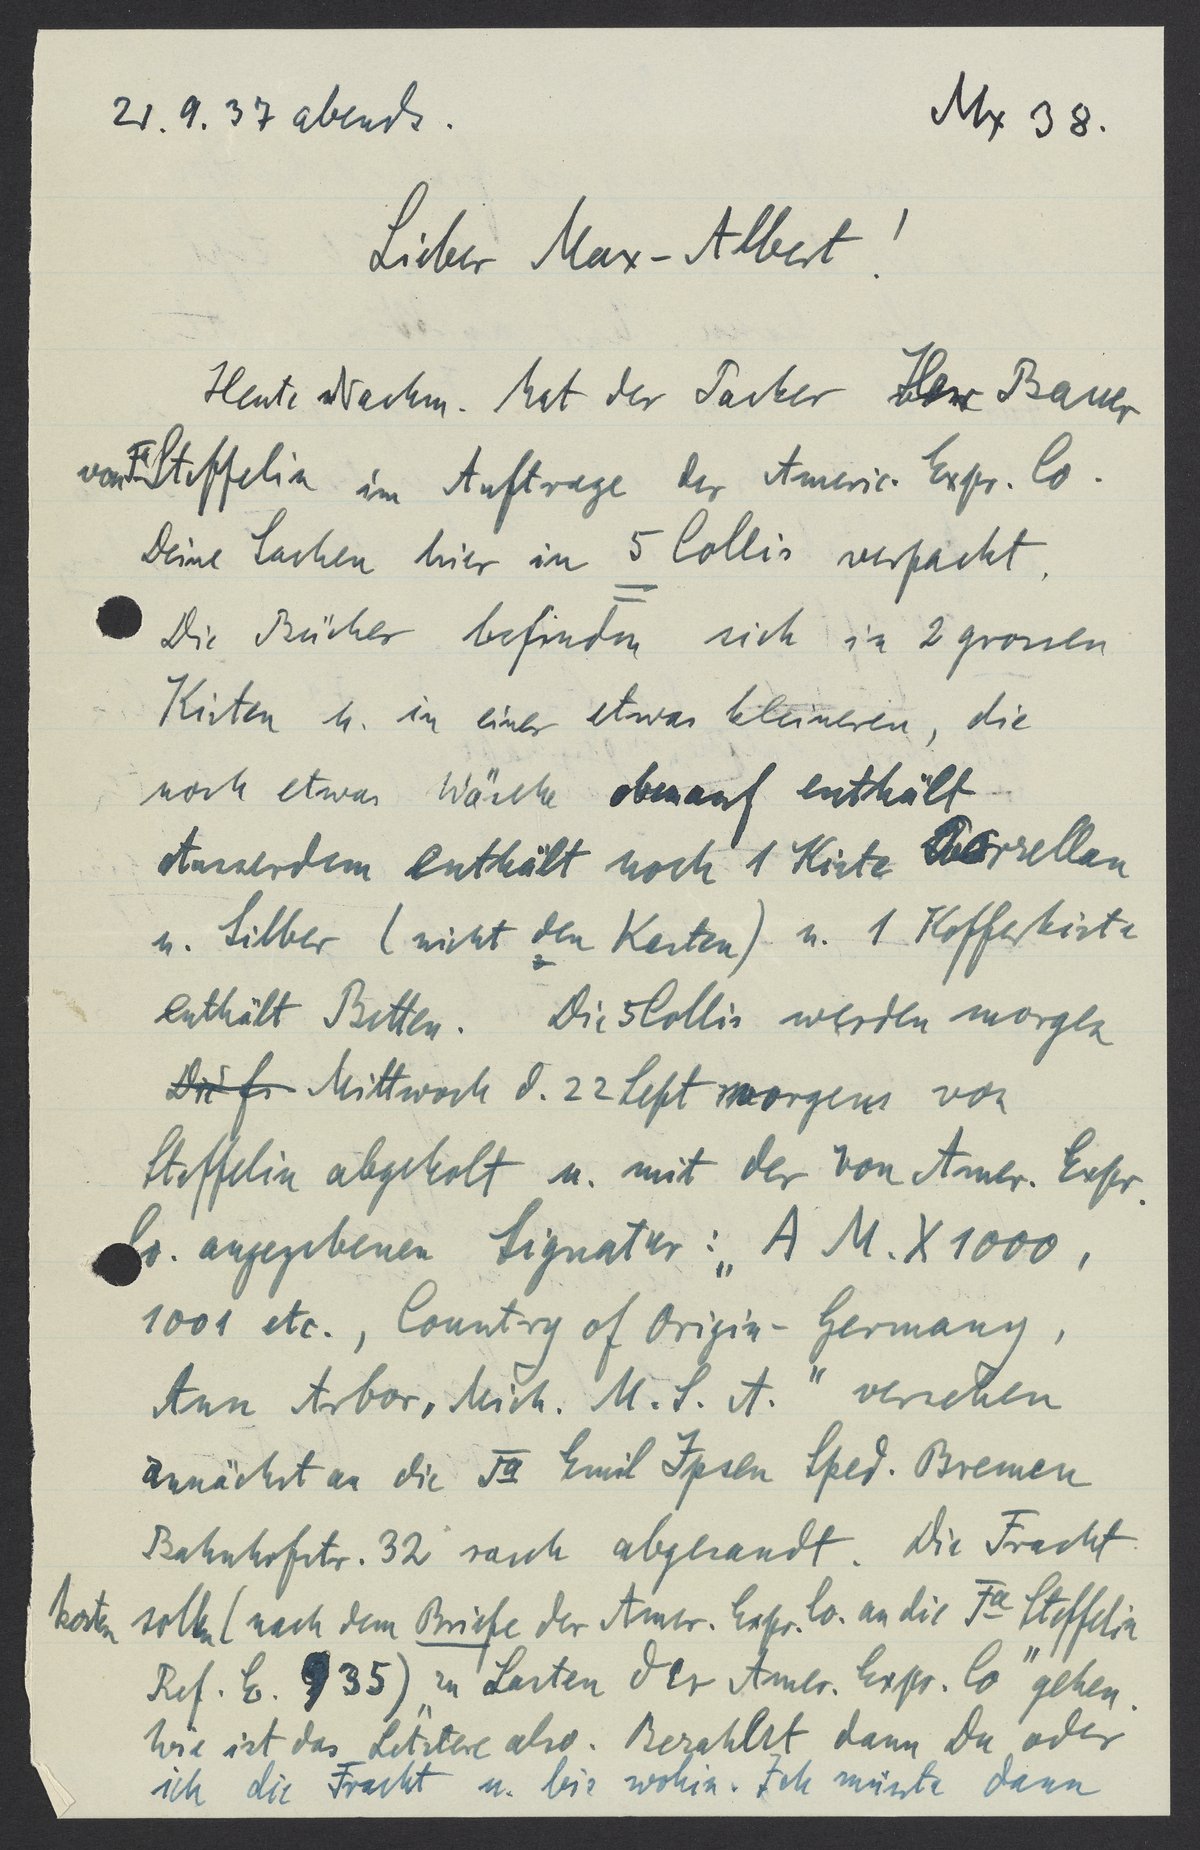 21. 9. 37 abends.
Mx 38.
Lieber Max-Albert!
Heute Nachm. hat der Packer Herr Bauer
von Fa Steffelin im Auftrage der Americ. Expr. Co.
Deine Sachen hier in 5 Collis verpackt.
Die Bücher befinden sich in 2 grossen
Kisten u. in einer etwas kleineren, die
noch etwas Wäsche obenauf enthält
Ausserdem enthält noch 1 Kiste Porzellan
u. Silber (nicht den Kasten) u. 1 Kofferkiste
enthält Betten. Die 5 Collis werden morgen
Die fr Mittwoch d. 22 Sept morgens von
Steffelin abgeholt u. mit der von Amer. Expr.
Co. angegebenen Signatur: „A M. X 1000,
1001 etc., Country of Origin - Germany,
Ann Arbor, Mich. U. S. A." versehen
zunächst an die Fa Emil Ipsen Sped. Bremen
Bahnhofstr. 32 rasch abgesandt. Die Fracht
kosten sollen (nach dem Briefe der Amer. Expr. Co. an die Fa Steffelin
Ref. E. 935) „zu Lasten der Amer. Expr. Co" gehen.
Wie ist das Letztere also. Bezahlst dann Du oder
ich die Fracht u. bis wohin. Ich müsste dann